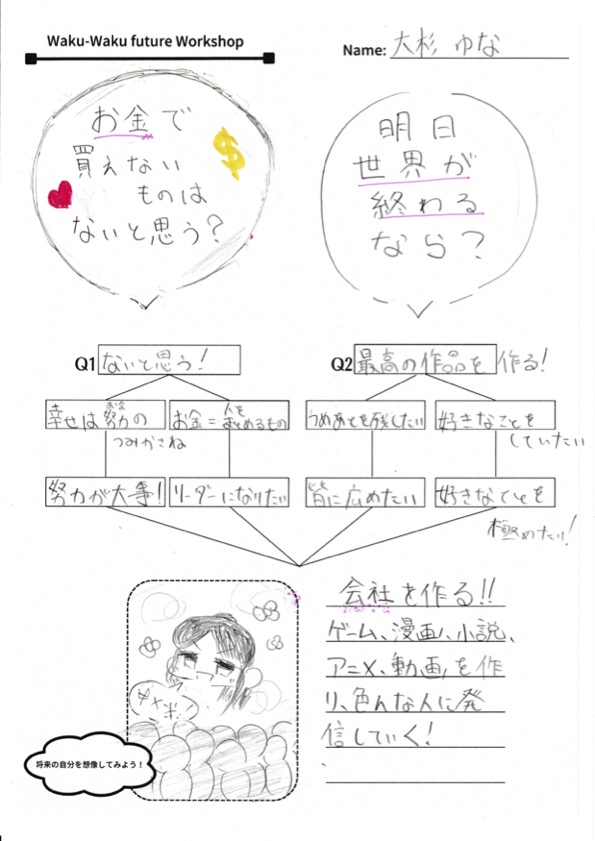 Waku-Waku future Workshop
Name: 大杉 ゆな
お金で
買えない
ものは
ないと思う?
$
明日
世界が
終わる
なら?
Q1 ないと思う!
Q2 最高の作品を作る!
幸せは努力の
つみかさね
お金=人をまとめるもの
つめあとを残したい
好きなことを
していたい
努力が大事!
リーダーになりたい
皆に広めたい
好きなことを
極めたい!
会社を作る!!
ゲーム、漫画、小説、
アニメ、動画を作
り、色んな人に発
信していく!
将来の自分を想像してみよう!